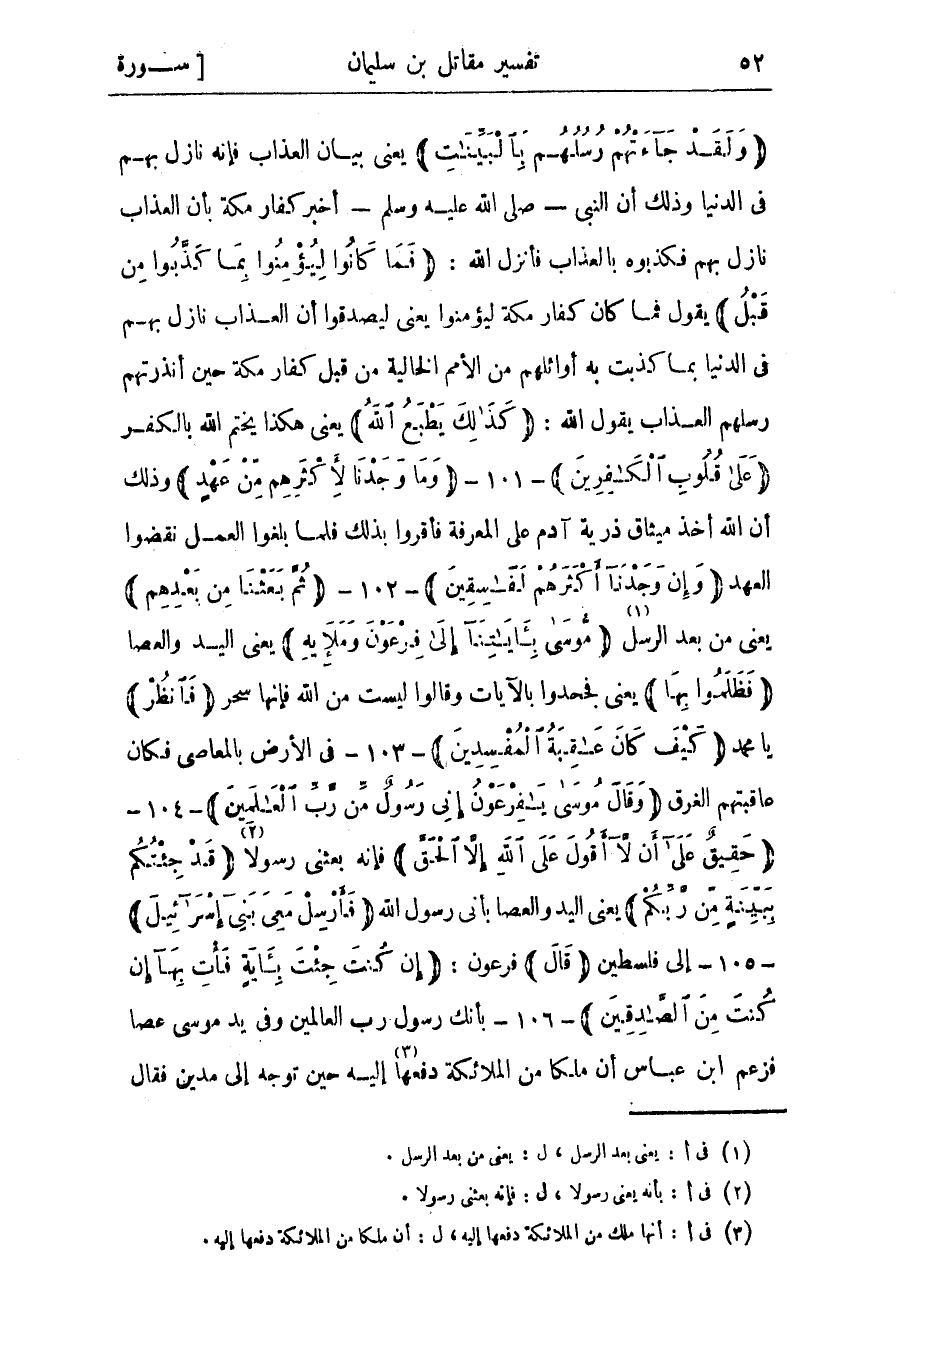 ٥٢ تفسير مقاتل بن سليمان [ سـورة
﴿ وَلَقَدْ جَآءَتْهُمْ رُسُلُهُم بِٱلْبَيِّنَـٰتِ ﴾ يعنى بيـان العذاب فإنه نازل بهـم
فى الدنيا وذلك أن النبى — صلى الله عليـه وسلم — أخبر كفار مكة بأن العذاب
نازل بهم فكذبوه بالعذاب فأنزل الله : ﴿ فَمَا كَانُوا لِيُؤْمِنُوا بِمَا كَذَّبُوا مِن
قَبْلُ ﴾ يقول فمـا كان كفار مكة ليؤمنوا يعنى ليصدقوا أن العـذاب نازل بهـم
فى الدنيا بمـا كذبت به أوائلهم من الأمم الخالية من قبل كفار مكة حين أنذرتهم
رسلهم العـذاب يقول الله : ﴿ كَذَٰلِكَ يَطْبَعُ ٱللَّهُ ﴾ يعنى هكذا يختم الله بالكفـر
﴿ عَلَىٰ قُلُوبِ ٱلْكَـٰفِرِينَ ﴾ - ١٠١ - ﴿ وَمَا وَجَدْنَا لِأَكْثَرِهِم مِّنْ عَهْدٍ ﴾ وذلك
أن الله أخذ ميثاق ذرية آدم على المعرفة فأقروا بذلك فلمـا بلغوا العمـل نقضوا
العهد ﴿ وَإِن وَجَدْنَآ أَكْثَرَهُمْ لَفَـٰسِقِينَ ﴾ - ١٠٢ - ﴿ ثُمَّ بَعَثْنَا مِن بَعْدِهِم ﴾
يعنى من بعد الرسل (١) ﴿ مُوسَىٰ بِـَٔايَـٰتِنَآ إِلَىٰ فِرْعَوْنَ وَمَلَإِيهِ ﴾ يعنى اليـد والعصا
﴿ فَظَلَمُوا بِهَا ﴾ يعنى فجحدوا بالآيات وقالوا ليست من الله فإنها سحر ﴿ فَٱنظُرْ ﴾
يا محمد ﴿ كَيْفَ كَانَ عَـٰقِبَةُ ٱلْمُفْسِدِينَ ﴾ - ١٠٣ - فى الأرض بالمعاصى فكان
عاقبتهم الغرق ﴿ وَقَالَ مُوسَىٰ يَـٰفِرْعَوْنُ إِنِّى رَسُولٌ مِّن رَّبِّ ٱلْعَـٰلَمِينَ ﴾ - ١٠٤ -
﴿ حَقِيقٌ عَلَىٰٓ أَن لَّآ أَقُولَ عَلَى ٱللَّهِ إِلَّا ٱلْحَقَّ ﴾ فإنه بعثنى رسولا (٢) ﴿ قَدْ جِئْتُكُم
بِبَيِّنَةٍ مِّن رَّبِّكُمْ ﴾ يعنى اليد والعصا بأنى رسول الله ﴿ فَأَرْسِلْ مَعِىَ بَنِىٓ إِسْرَٰٓئِيلَ ﴾
- ١٠٥ - إلى فلسطين ﴿ قَالَ ﴾ فرعون : ﴿ إِن كُنتَ جِئْتَ بِـَٔايَةٍ فَأْتِ بِهَآ إِن
كُنتَ مِنَ ٱلصَّـٰدِقِينَ ﴾ - ١٠٦ - بأنك رسول رب العالمين وفى يد موسى عصا
فزعم ابن عبـاس أن ملكا من الملائكة دفعها (٣) إليـه حين توجه إلى مدين فقال
(١) فى أ : يعنى بعد الرسل ، ل : يعنى من بعد الرسل .
(٢) فى أ : بأنه يعنى رسولا ، ل : فإنه بعثنى رسولا .
(٣) فى أ : أنها ملك من الملائكة دفعها إليه ، ل : أن ملكا من الملائكة دفعها إليه .